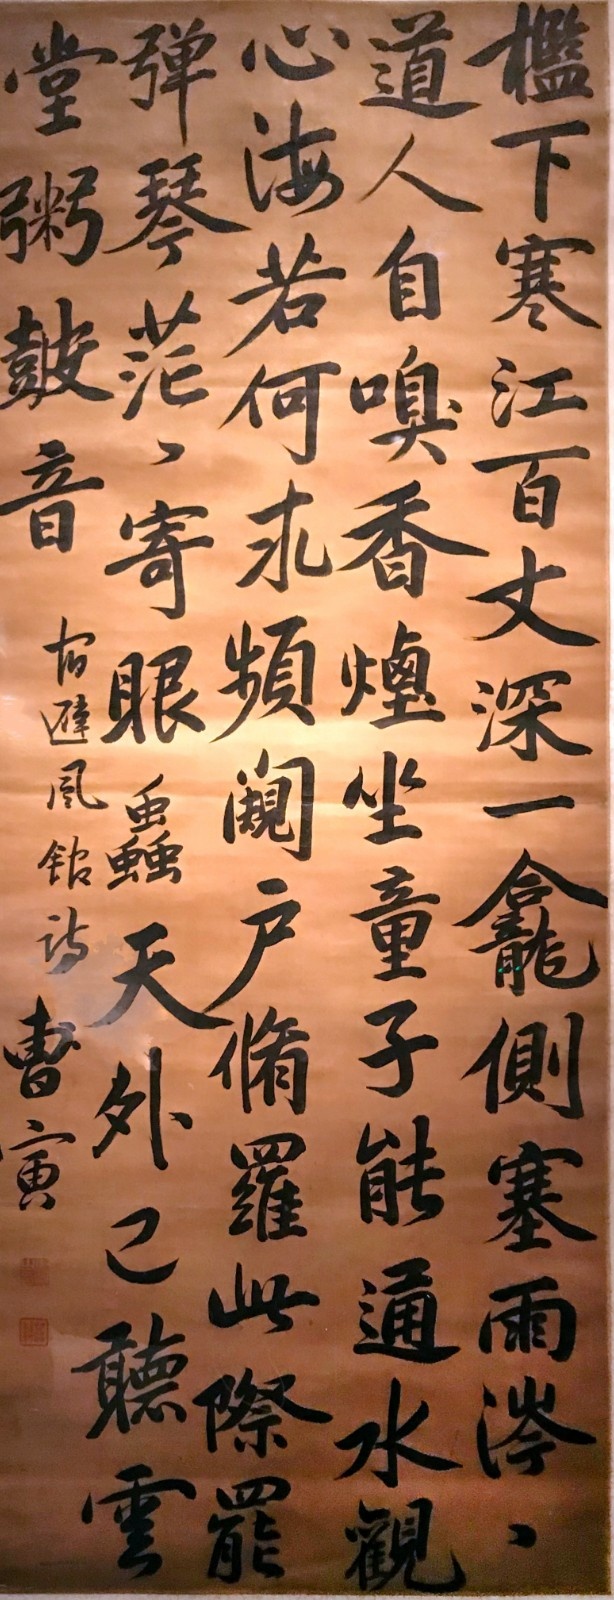 檻下寒江百丈深一龕側塞雨涔、
道人自嗅香煙坐童子能通水觀
心海若何求頻闞戶脩羅此際罷
弹琴茫、寄眼蟁天外已聽雲
堂粥鼓音
宿避風館詩 曹寅